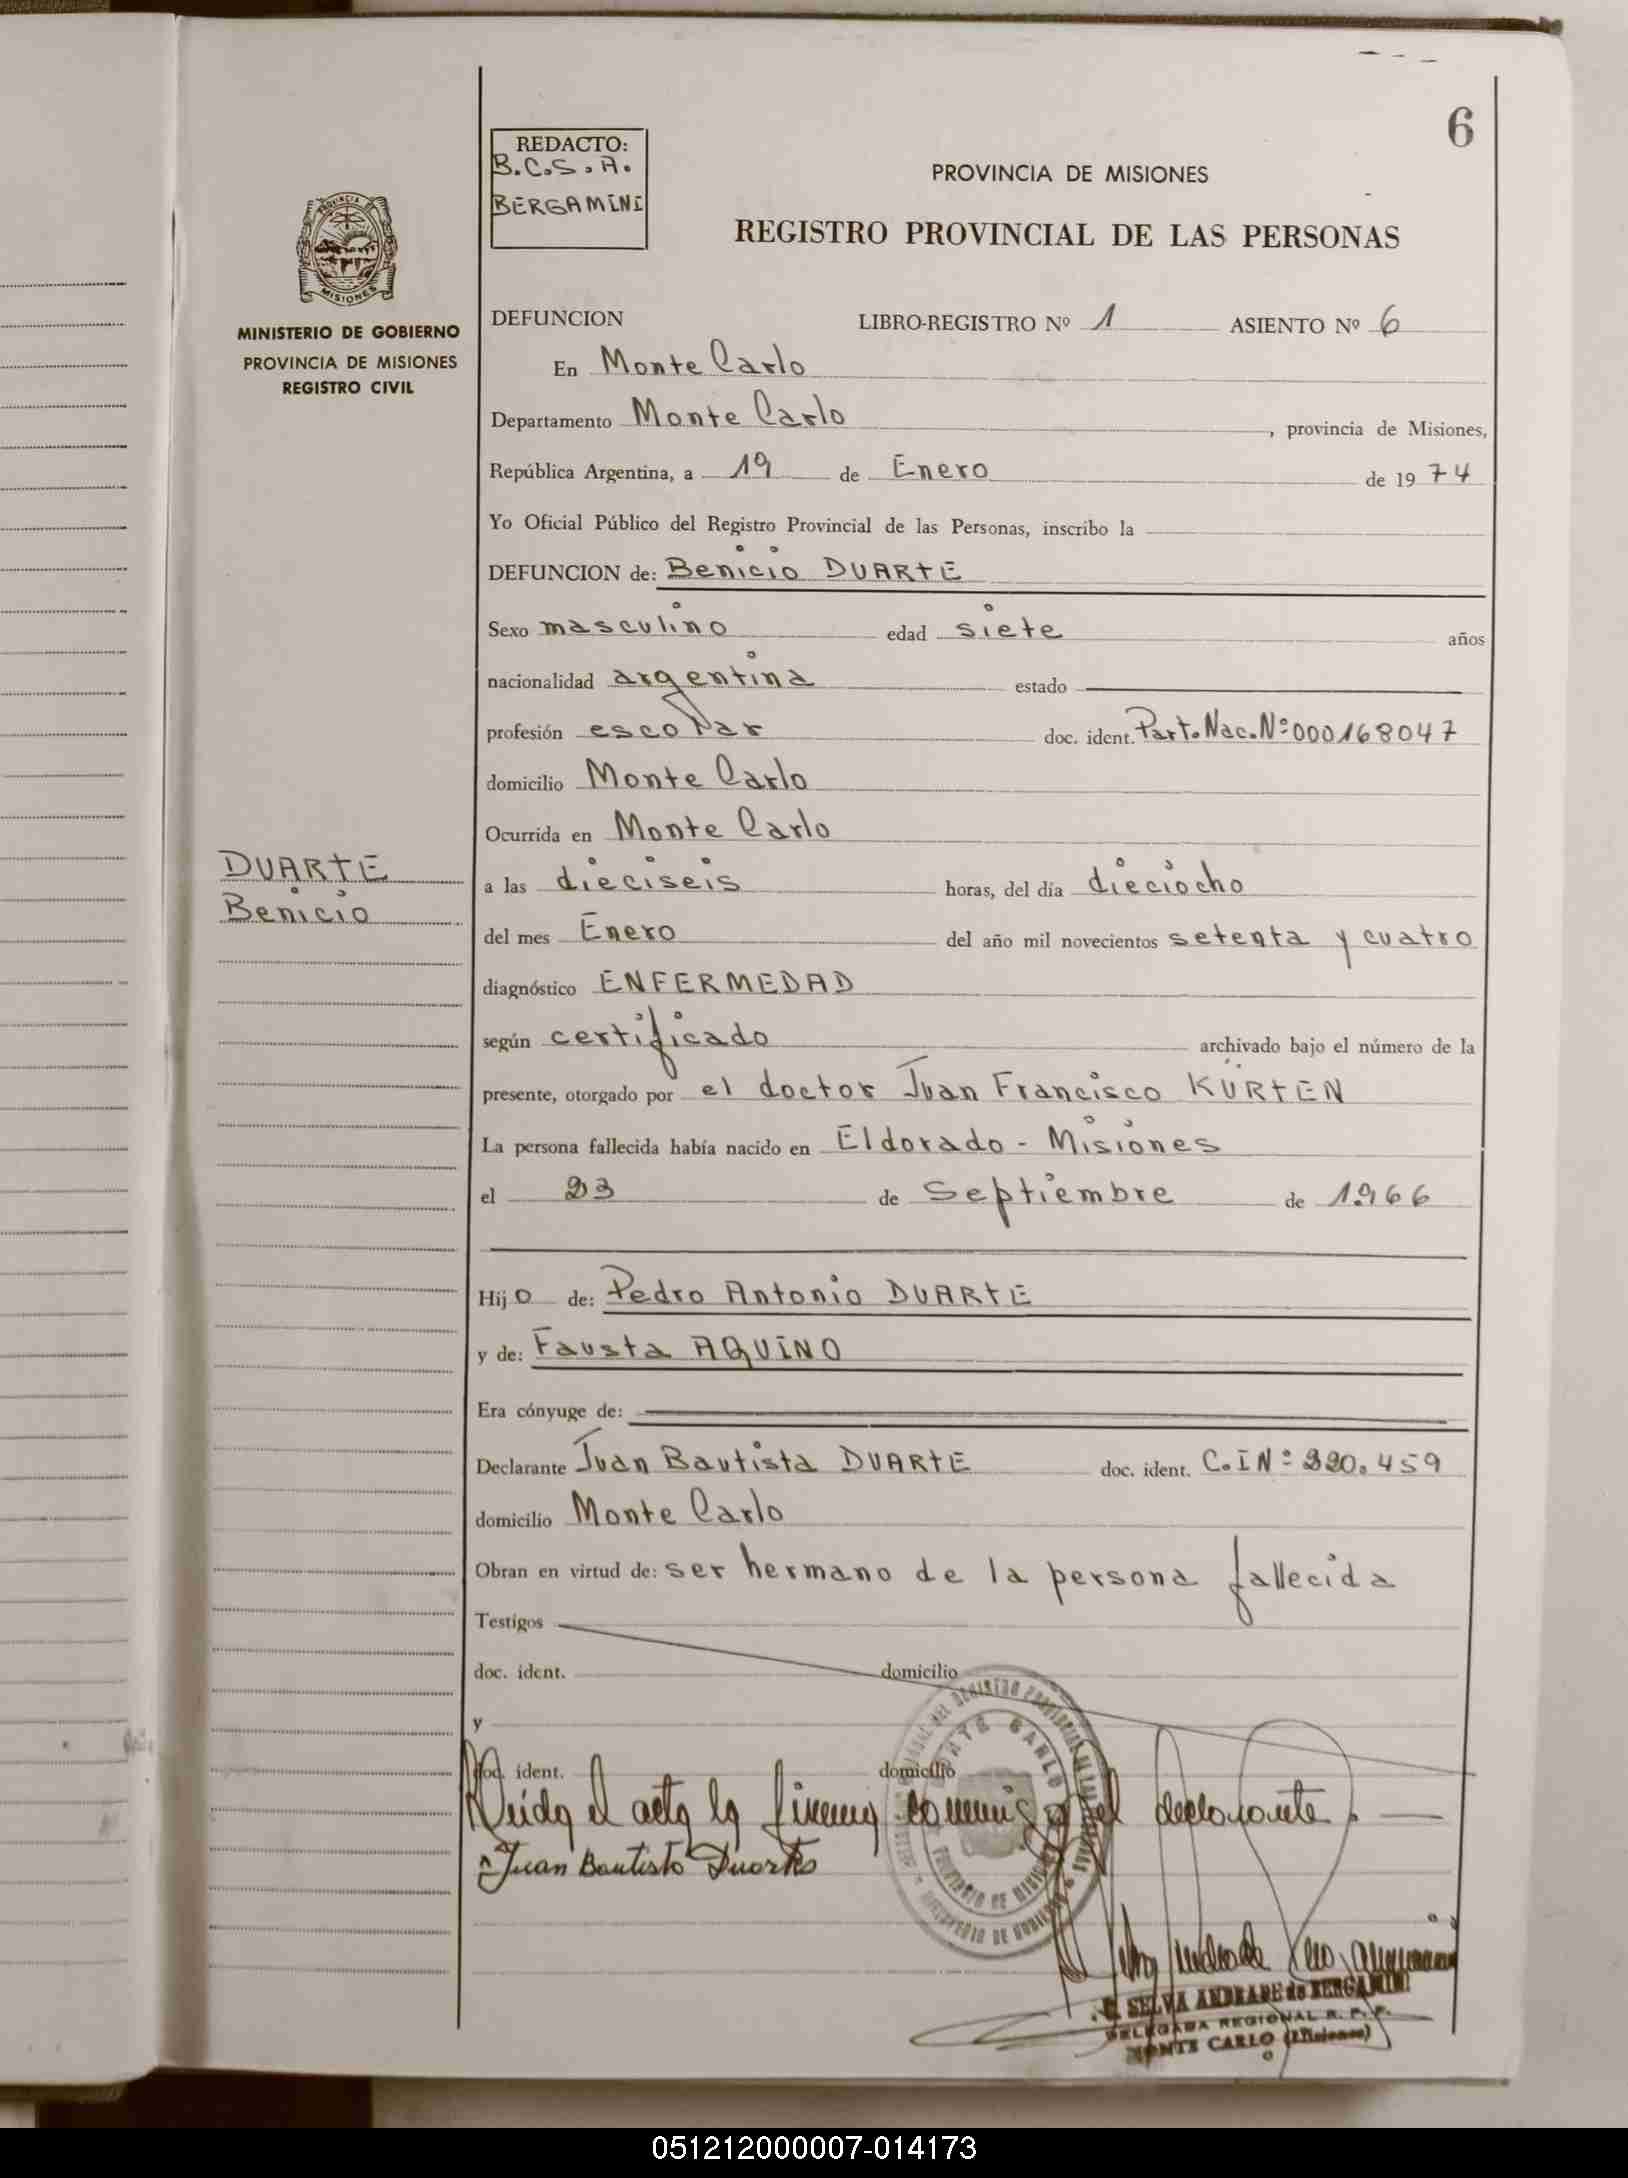 6
REDACTO:
B.C.S.A.
BERGAMINI
PROVINCIA DE MISIONES
REGISTRO PROVINCIAL DE LAS PERSONAS
PROVINCIA DE
MISIONES
MINISTERIO DE GOBIERNO
PROVINCIA DE MISIONES
REGISTRO CIVIL
DEFUNCION LIBRO-REGISTRO Nº 1 ASIENTO Nº 6
En Monte Carlo
Departamento Monte Carlo, provincia de Misiones,
República Argentina, a 19 de Enero de 1974
Yo Oficial Público del Registro Provincial de las Personas, inscribo la
DEFUNCION de: Benicio DUARTE
Sexo masculino edad siete años
nacionalidad argentina estado
profesión escolar doc. ident. Part. Nac. Nº 000168047
domicilio Monte Carlo
Ocurrida en Monte Carlo
DUARTE
Benicio
a las dieciseis horas, del día dieciocho
del mes Enero del año mil novecientos setenta y cuatro
diagnóstico ENFERMEDAD
según certificado archivado bajo el número de la
presente, otorgado por el doctor Juan Francisco KÜRTEN
La persona fallecida había nacido en Eldorado - Misiones
el 23 de Septiembre de 1966
Hijo de: Pedro Antonio DUARTE
y de: Fausta AQUINO
Era cónyuge de:
Declarante Juan Bautista DUARTE doc. ident. C.I Nº 320.459
domicilio Monte Carlo
Obran en virtud de: ser hermano de la persona fallecida
Testigos
doc. ident. domicilio
y
doc. ident. domicilio
Leída el acta la firma conmigo el declarante.
Juan Bautista Duarte
MONTE CARLO
PROVINCIA DE MISIONES
MINISTERIO DE GOBIERNO
SELVA ANDRADE de BERGAMINI
DELEGADA REGIONAL R. P. P.
MONTE CARLO (Misiones)
051212000007-014173